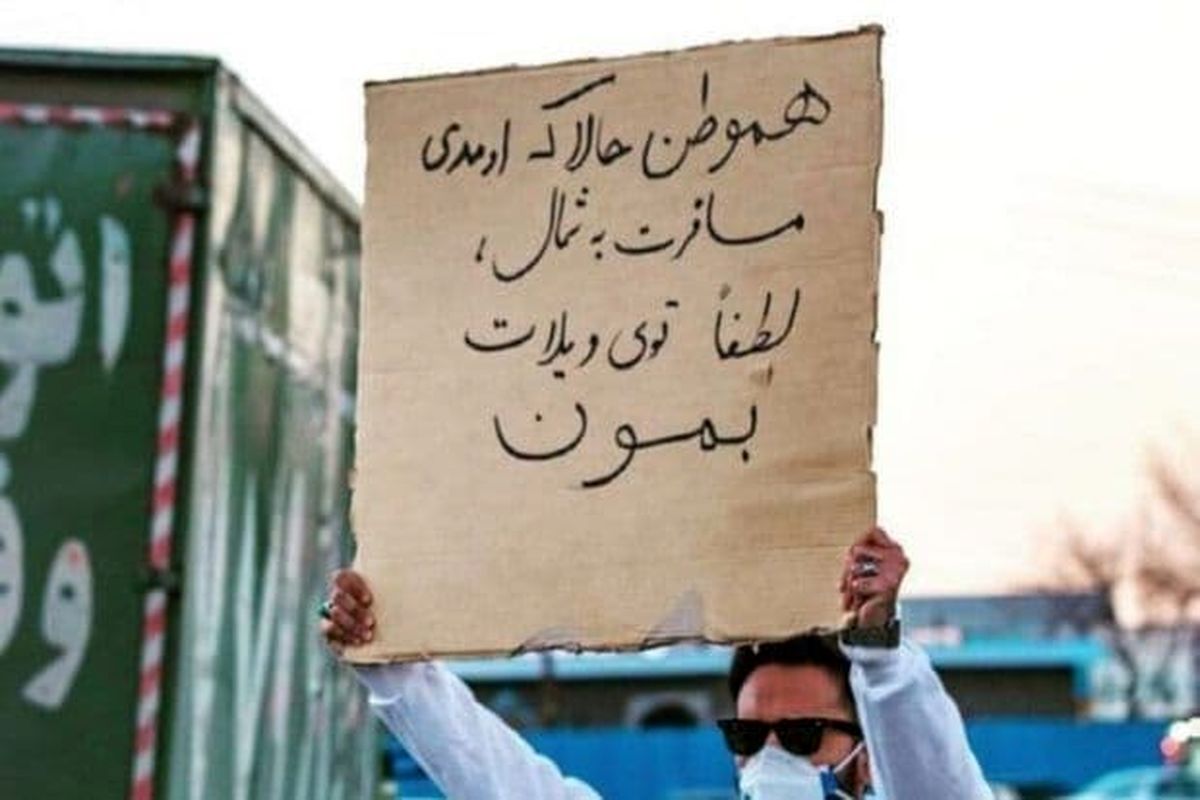 هموطن حالا که اومدی
مسافرت به شمال،
لطفاً توی ویلات
بمون